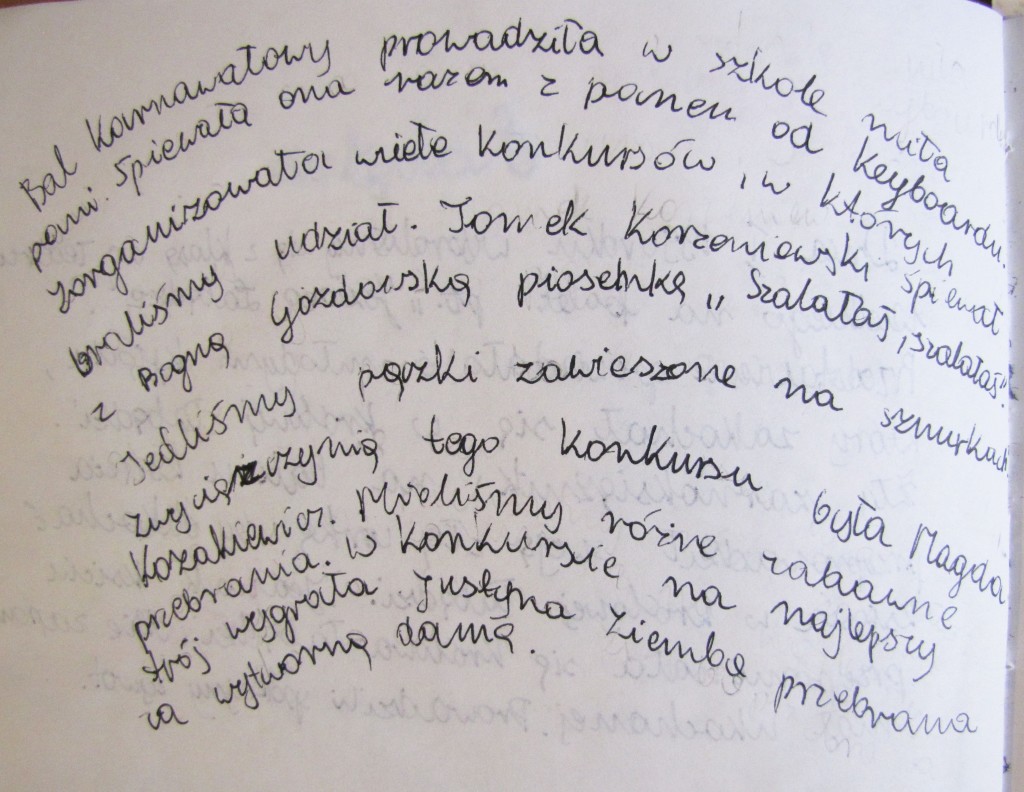 Bal karnawałowy prowadziła w szkole miła
pani. Śpiewała ona razem z panem od keyboardu.
Zorganizowała wiele konkursów, w których
braliśmy udział. Tomek Korzeniewski śpiewał
z Bogną Gozdowską piosenkę „Szalałaś, szalałaś".
Jedliśmy pączki zawieszone na sznurkach
zwyciężczynią tego konkursu była Magda
Kozakiewicz. Mieliśmy różne zabawne
przebrania. W konkursie na najlepszy
strój wygrała Justyna Ziemba przebrana
za wytworną damą.